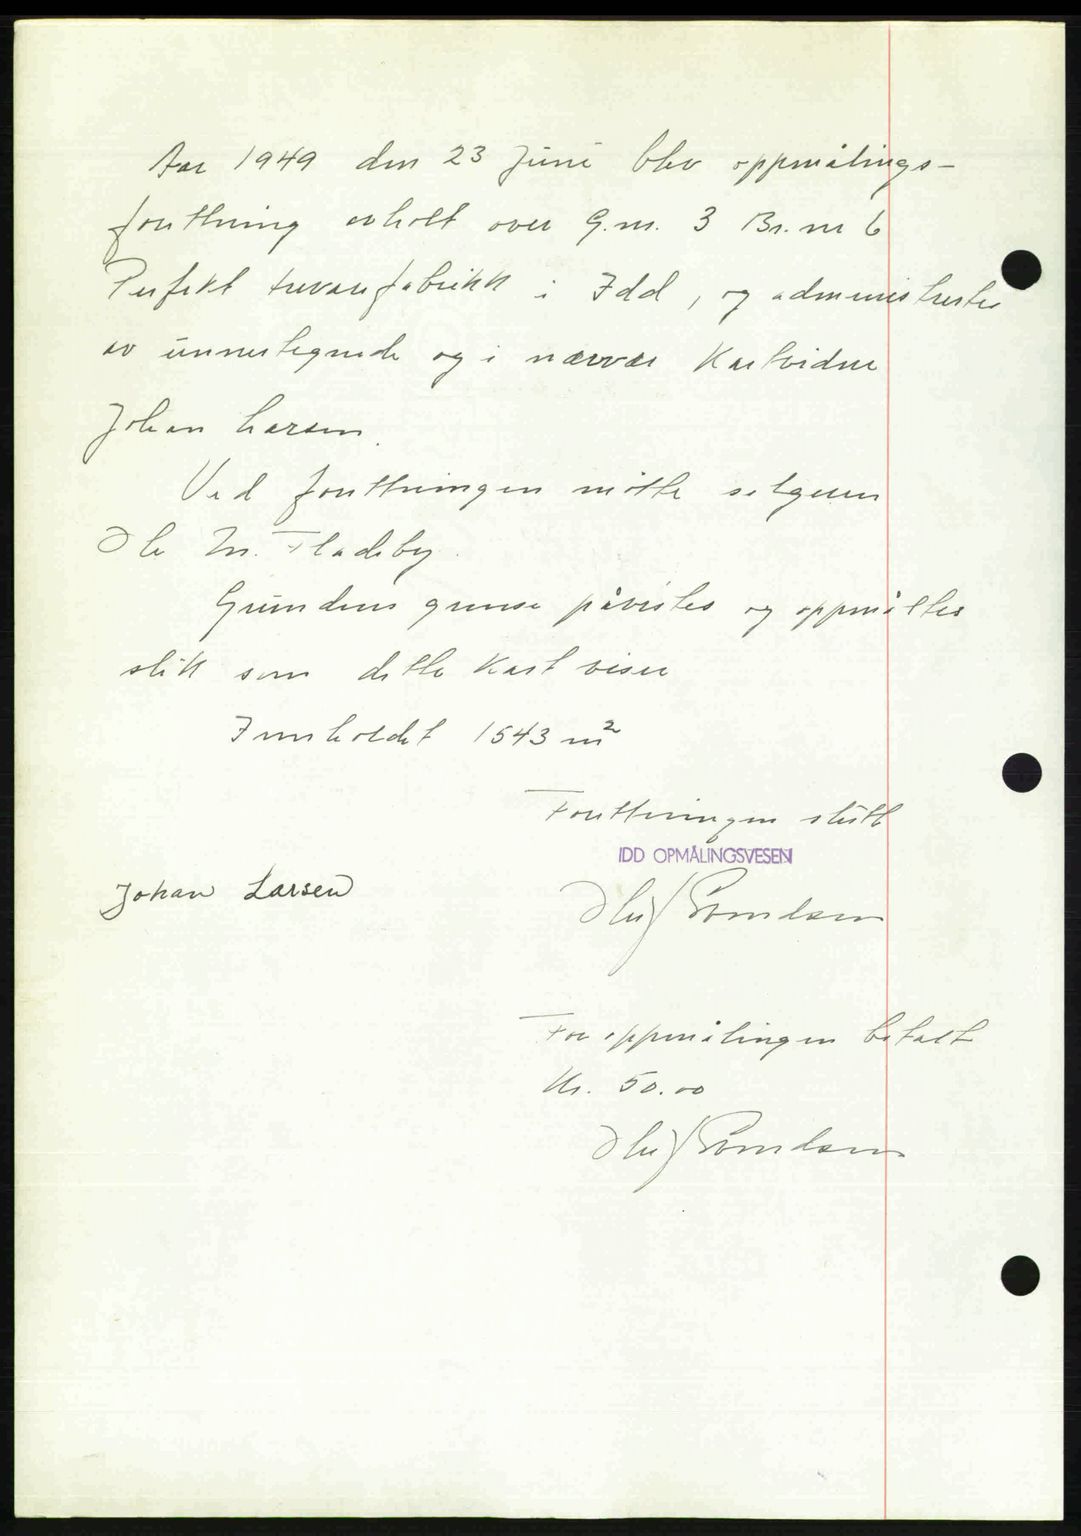 Aar 1949 den 23 Juni blev oppmålings-
forettning avholt over G.nr. 3 Br. nr 6
Perfekt trevarefabrikk i Idd, og administrertes
av unnertegnede og i nærvær Kartvidne
Johan Larsen.
Ved forettningen møtte selgeren
Ole M. Fladeby.
Grundens grense påvistes og oppmåltes
slik som dette Kart viser
Innholdet 1543 m²
Forettningen slutt
IDD OPMÅLINGSVESEN
Johan Larsen
Oluf
For oppmålingen betalt
Kr. 50.00
Oluf